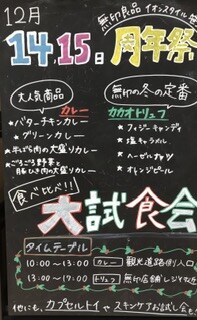 12月
無印良品 イオンスタイル
14 15日 周年祭
大人気商品
カレー
★ バターチキンカレー
★ グリーンカレー
★ 牛ばら肉の大盛りカレー
★ ごろごろ野菜と
豚ひき肉の大盛りカレー
無印の冬の定番
カカオトリュフ
★ フィジーキャンディ
★ 塩キャラメル
★ ヘーゼルナッツ
★ オレンジピール
食べ比べ!!
大試食会
タイムテーブル
10:00～13:00 カレー 観光道路側入口
13:00～19:00 トリュフ 無印店舗レジ
他にも、カプセルトイやスキンケアお試し会も